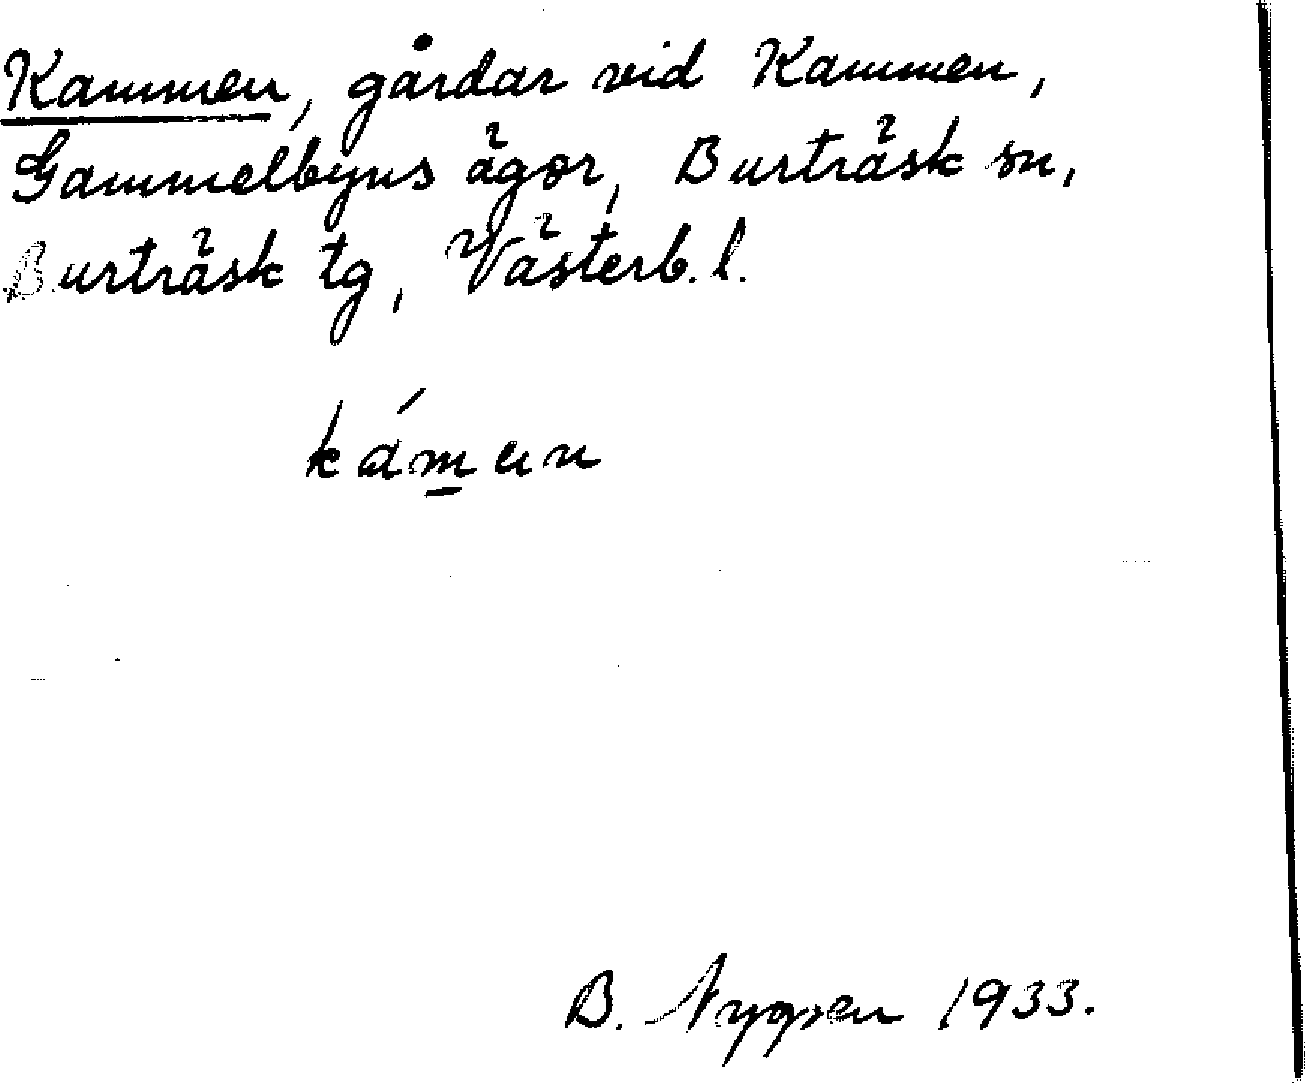 Kammen, gårdar vid Kammen,
Gammelbyns ägor, Burträsk sn,
Burträsk tg, Västerb. l.
kám̲an
B. Nygren 1933.